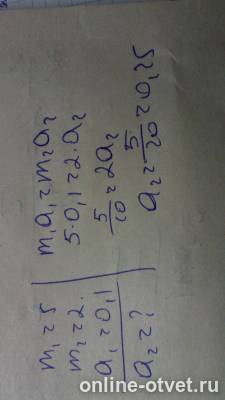 m₁ = 5
m₂ = 2.
a₁ = 0,1
a₂ = ?
m₁a₁ = m₂a₂
5·0,1 = 2·a₂
5/10 = 2a₂
a₂ = 5/20 = 0,25
online-otvet.ru